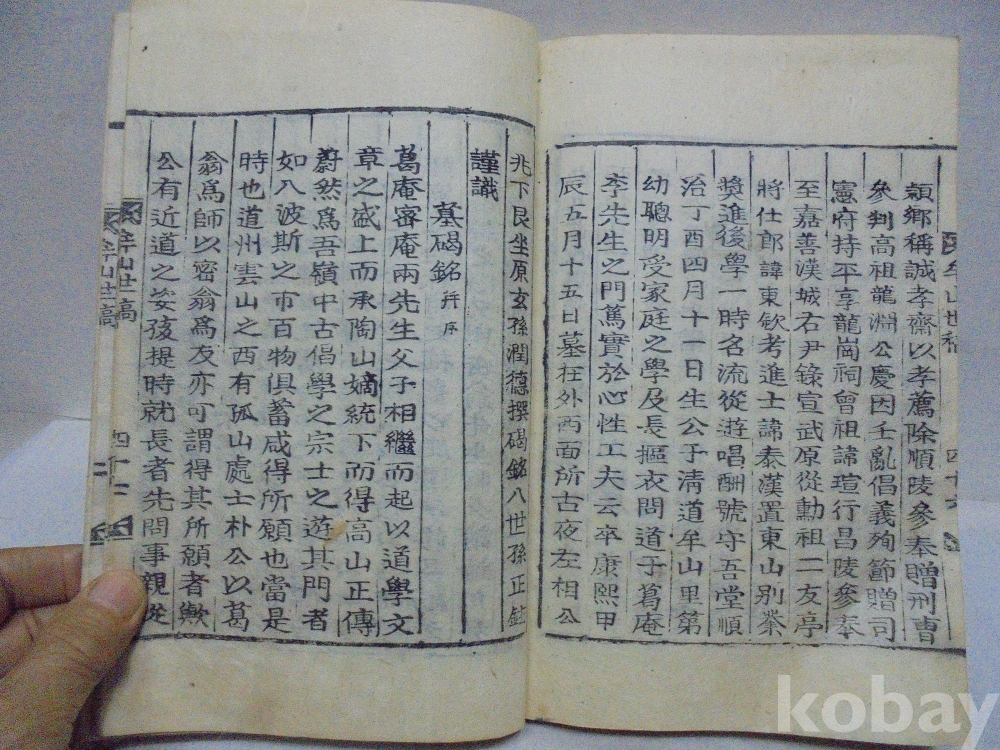 顔鄉稱誠孝齋以孝薦除順陵參奉贈刑曹
參判高祖龍淵公慶因壬亂倡義殉節贈司
憲府持平享龍崗祠曾祖諱瑄行昌陵參奉
至嘉善漢城右尹錄宣武原從勳祖二友亭
將仕郎諱東欽考進士諱泰漢置東山別業
奬進後學一時名流從遊唱酬號守吾堂順
治丁酉四月十一日生公于淸道牟山里第
幼聰明受家庭之學及長摳衣問道于葛庵
李先生之門篤實於心性工夫云卒康熙甲
辰五月十五日墓在外西面所古夜左相公
兆下艮坐原玄孫潤德撰碣銘八世孫正鉉
謹識
墓碣銘 幷序
葛庵密庵兩先生父子相繼而起以道學文
章之盛上而承陶山嫡統下而得高山正傳
蔚然爲吾嶺中古倡學之宗士之遊其門者
如入波斯之市百物俱蓄咸得所願也當是
時也道州雲山之西有孤山處士朴公以葛
翁爲師以密翁爲友亦可謂得其所願者歟
公有近道之姿孩提時就長者先問事親從
牟山世稿
牟山世稿
四十
二
牟山世稿
四十
kobay